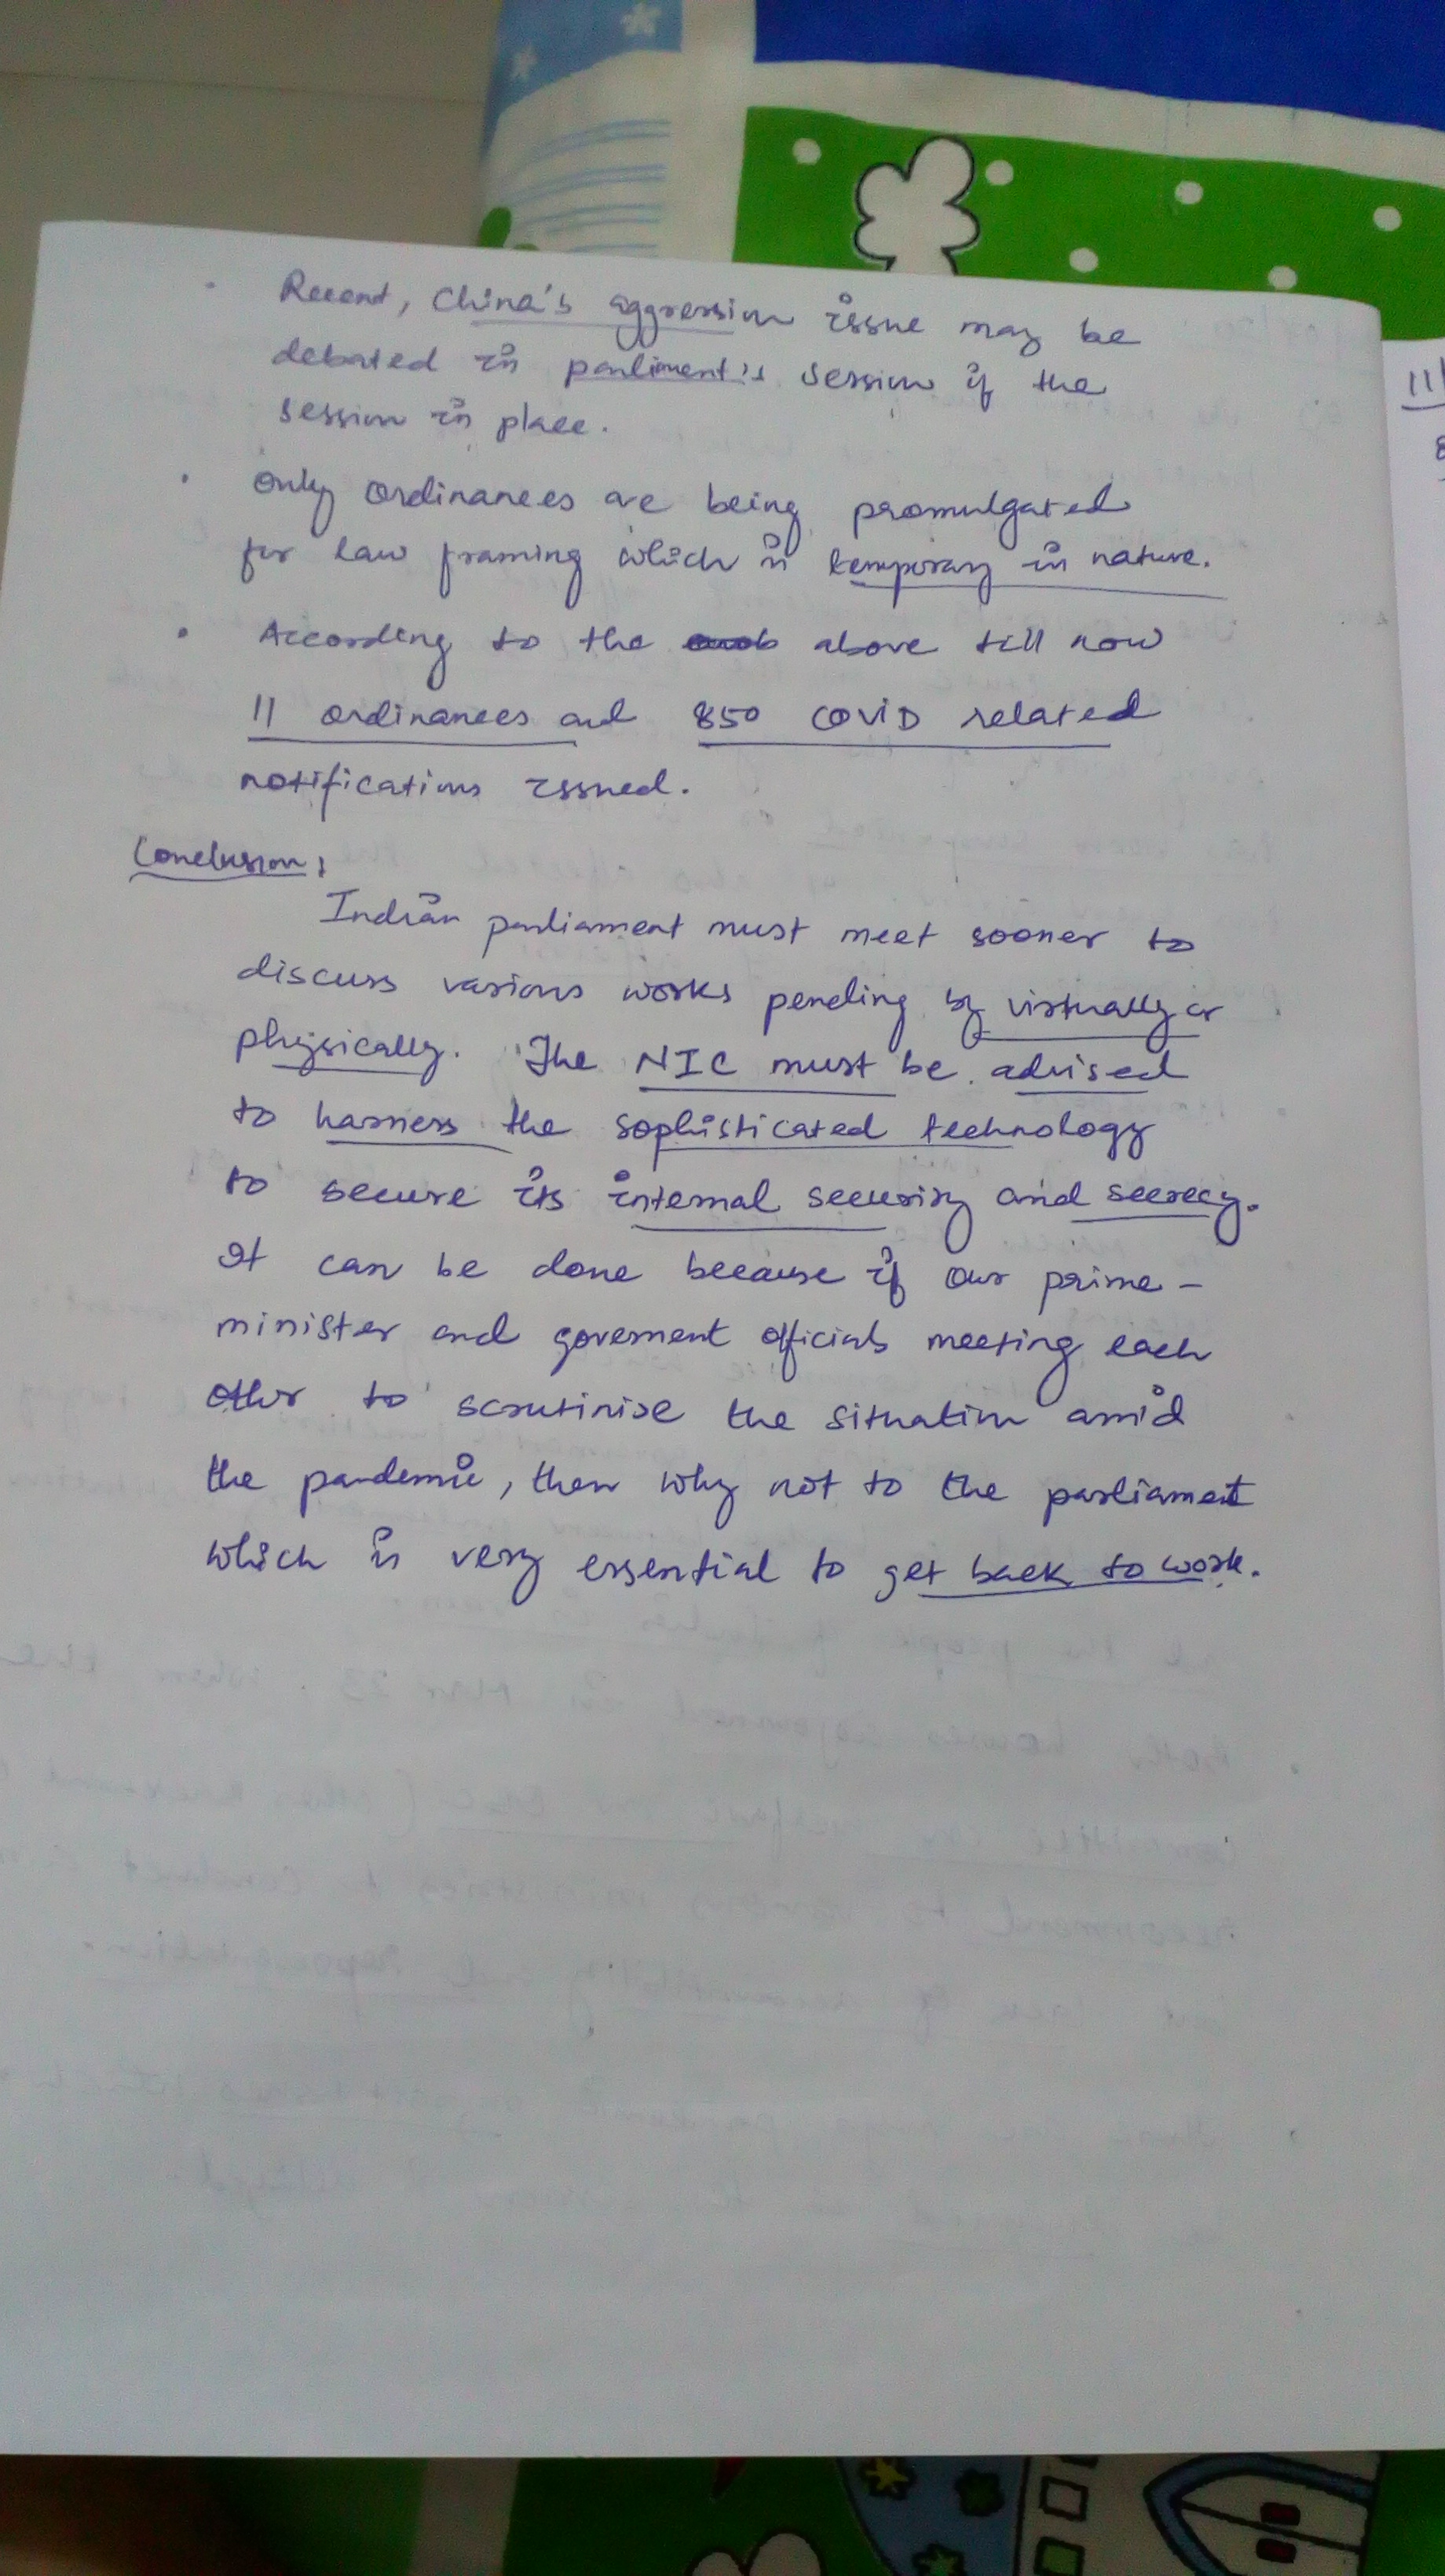 · Recent, China's aggression issue may be
debated in parliment's session if the
session in place.
· Only ordinances are being promulgated
for law framing which is temporary in nature.
· According to the above till now
11 ordinances and 850 COVID related
notifications issued.
Conclusion:
Indian parliament must meet sooner to
discuss various works pending by virtually or
physically. The NIC must be advised
to harness the sophisticated technology
to secure its internal security and secrecy.
It can be done because if our prime-
minister and goverment officials meeting each
other to scrutinise the situation amid
the pandemic, then why not to the parliament
which is very essential to get back to work.
11